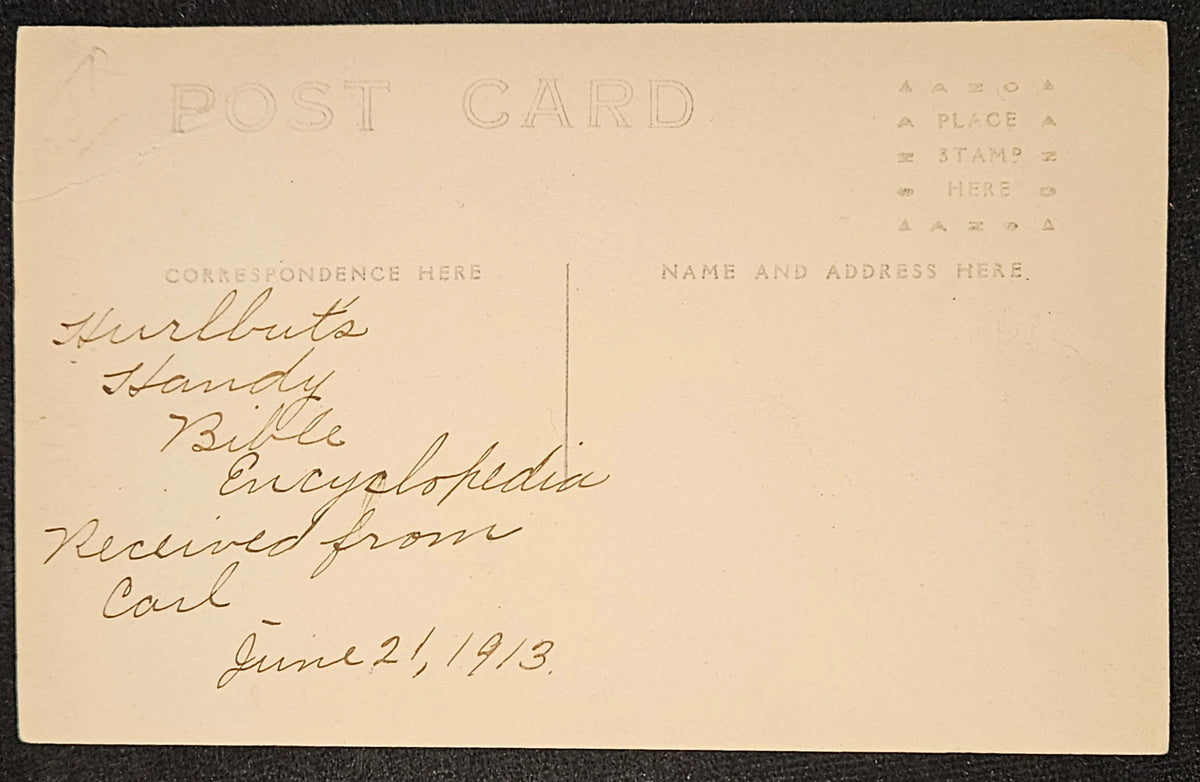 POST CARD
▲ A Z O ▲
▲ PLACE ▲
Z STAMP Z
● HERE O
▲ A Z O ▲
CORRESPONDENCE HERE
NAME AND ADDRESS HERE.
Hurlbut's
Handy
Bible
Encyclopedia
Received from
Carl
June 21, 1913.